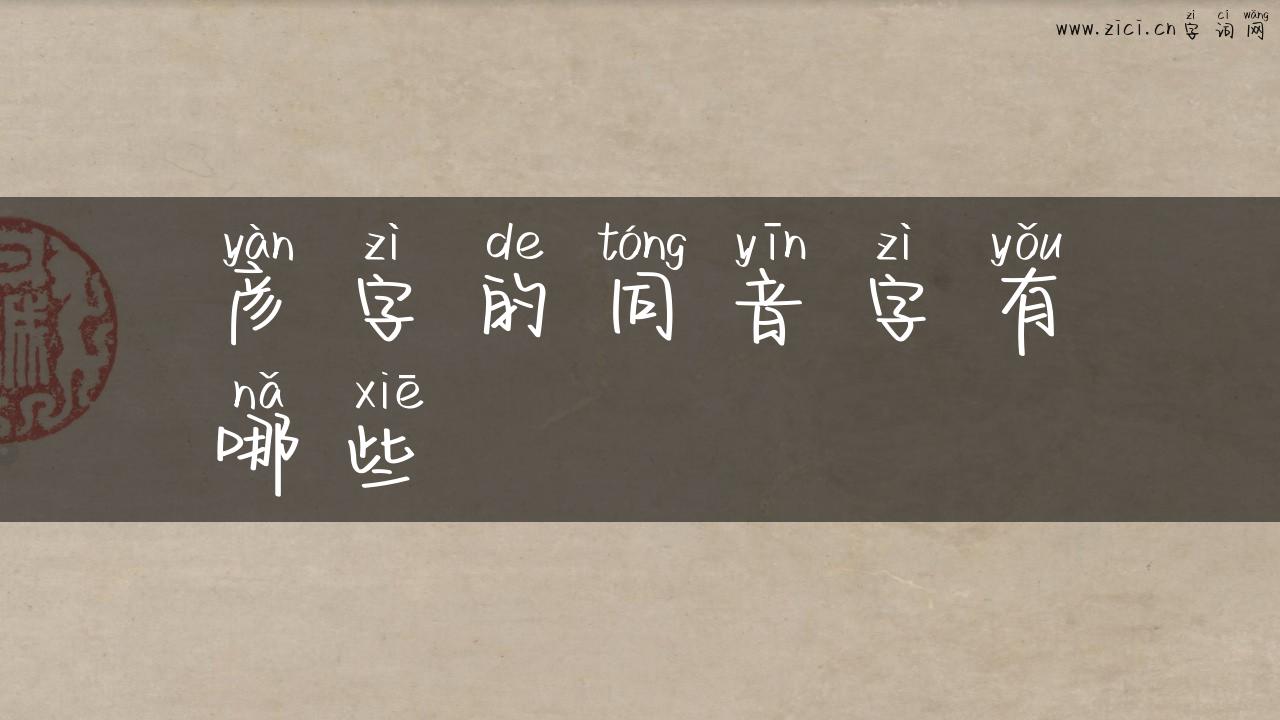 zì cí wǎng
www.zici.cn字词网
yàn zì de tóng yīn zì yǒu
彦字的同音字有
nǎ xiē
哪些